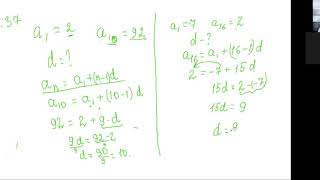 .37
a₁ = 2   a₁₀ = 92
d = ?
aₙ = a₁ + (n-1)d
a₁₀ = a₁ + (10-1)d
92 = 2 + 9·d
9d = 92-2
d = 90/9 = 10.
a₁ = -7   a₁₆ = 2
d - ?
a₁₆ = a₁ + (16-1)d
2 = -7 + 15d
15d = 2-(-7)
15d = 9
d = 9